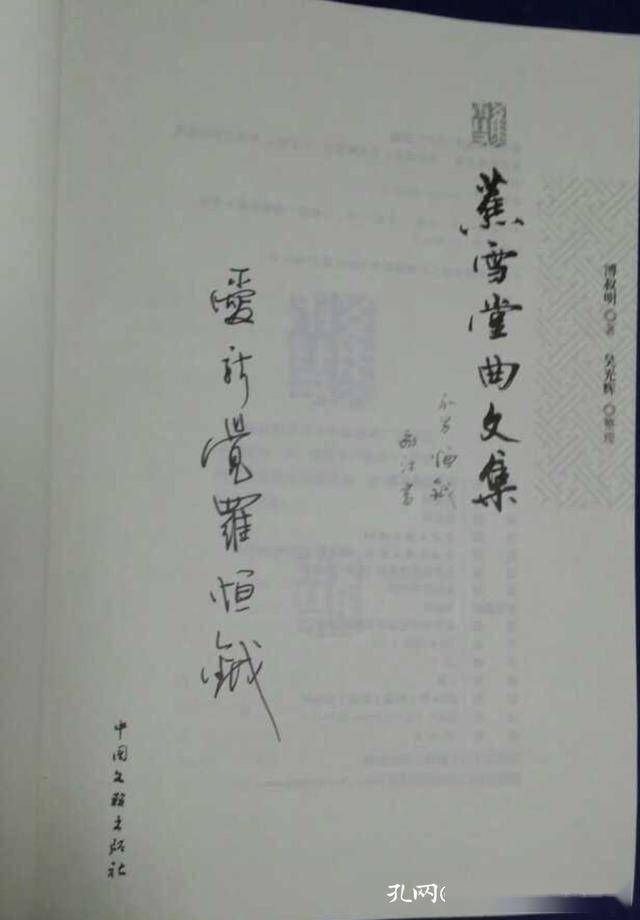 溥叔明◎著 吴光辉◎整理
蕉雪堂曲文集
愛新覺羅恒鉞
中国文联出版社
孔网(